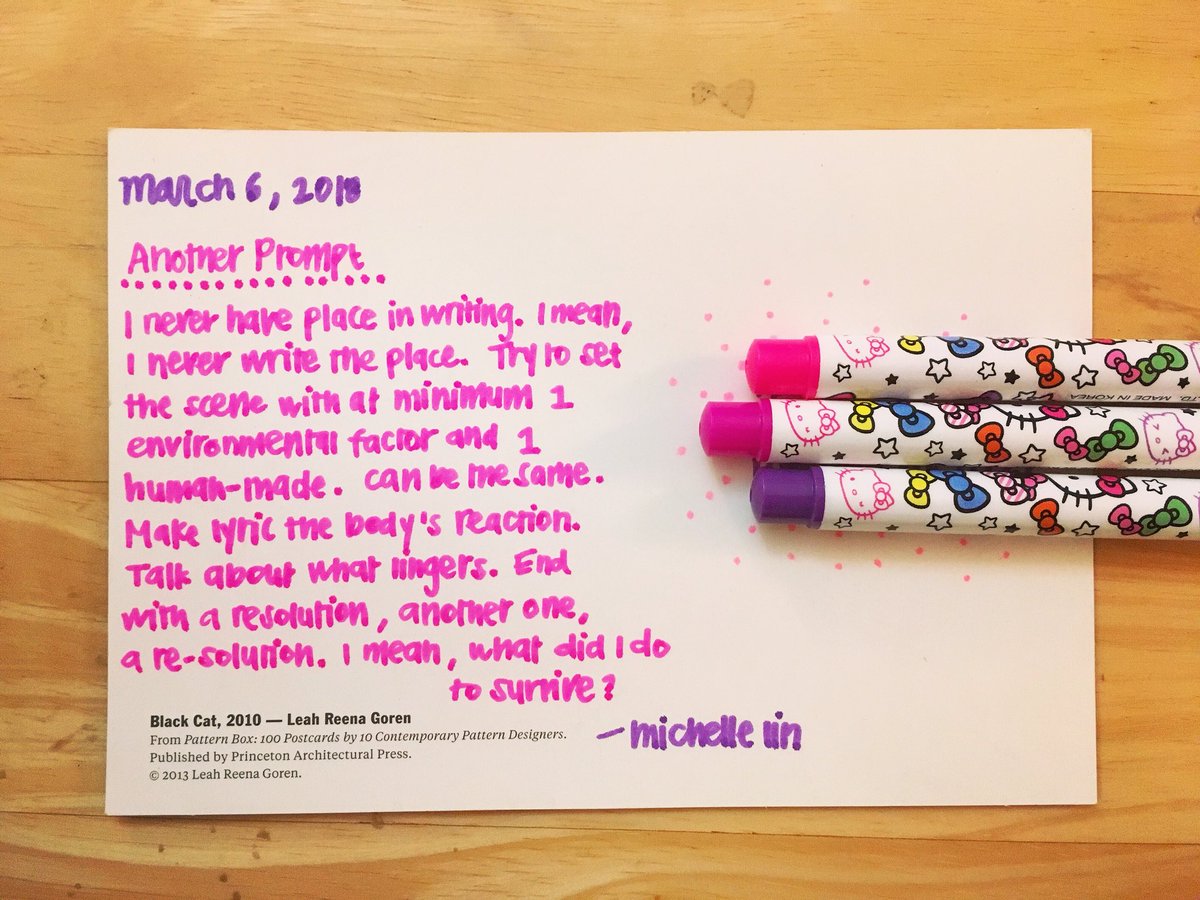 March 6, 2018
Another Prompt
I never have place in writing. I mean,
I never write the place. Try to set
the scene with at minimum 1
environmental factor and 1
human-made. can be the same.
Make lyric the body's reaction.
Talk about what lingers. End
with a resolution, another one,
a re-solution. I mean, what did I do
to survive?
— michelle lin
Black Cat, 2010 — Leah Reena Goren
From Pattern Box: 100 Postcards by 10 Contemporary Pattern Designers.
Published by Princeton Architectural Press.
© 2013 Leah Reena Goren.
LTD. MADE IN KOREA